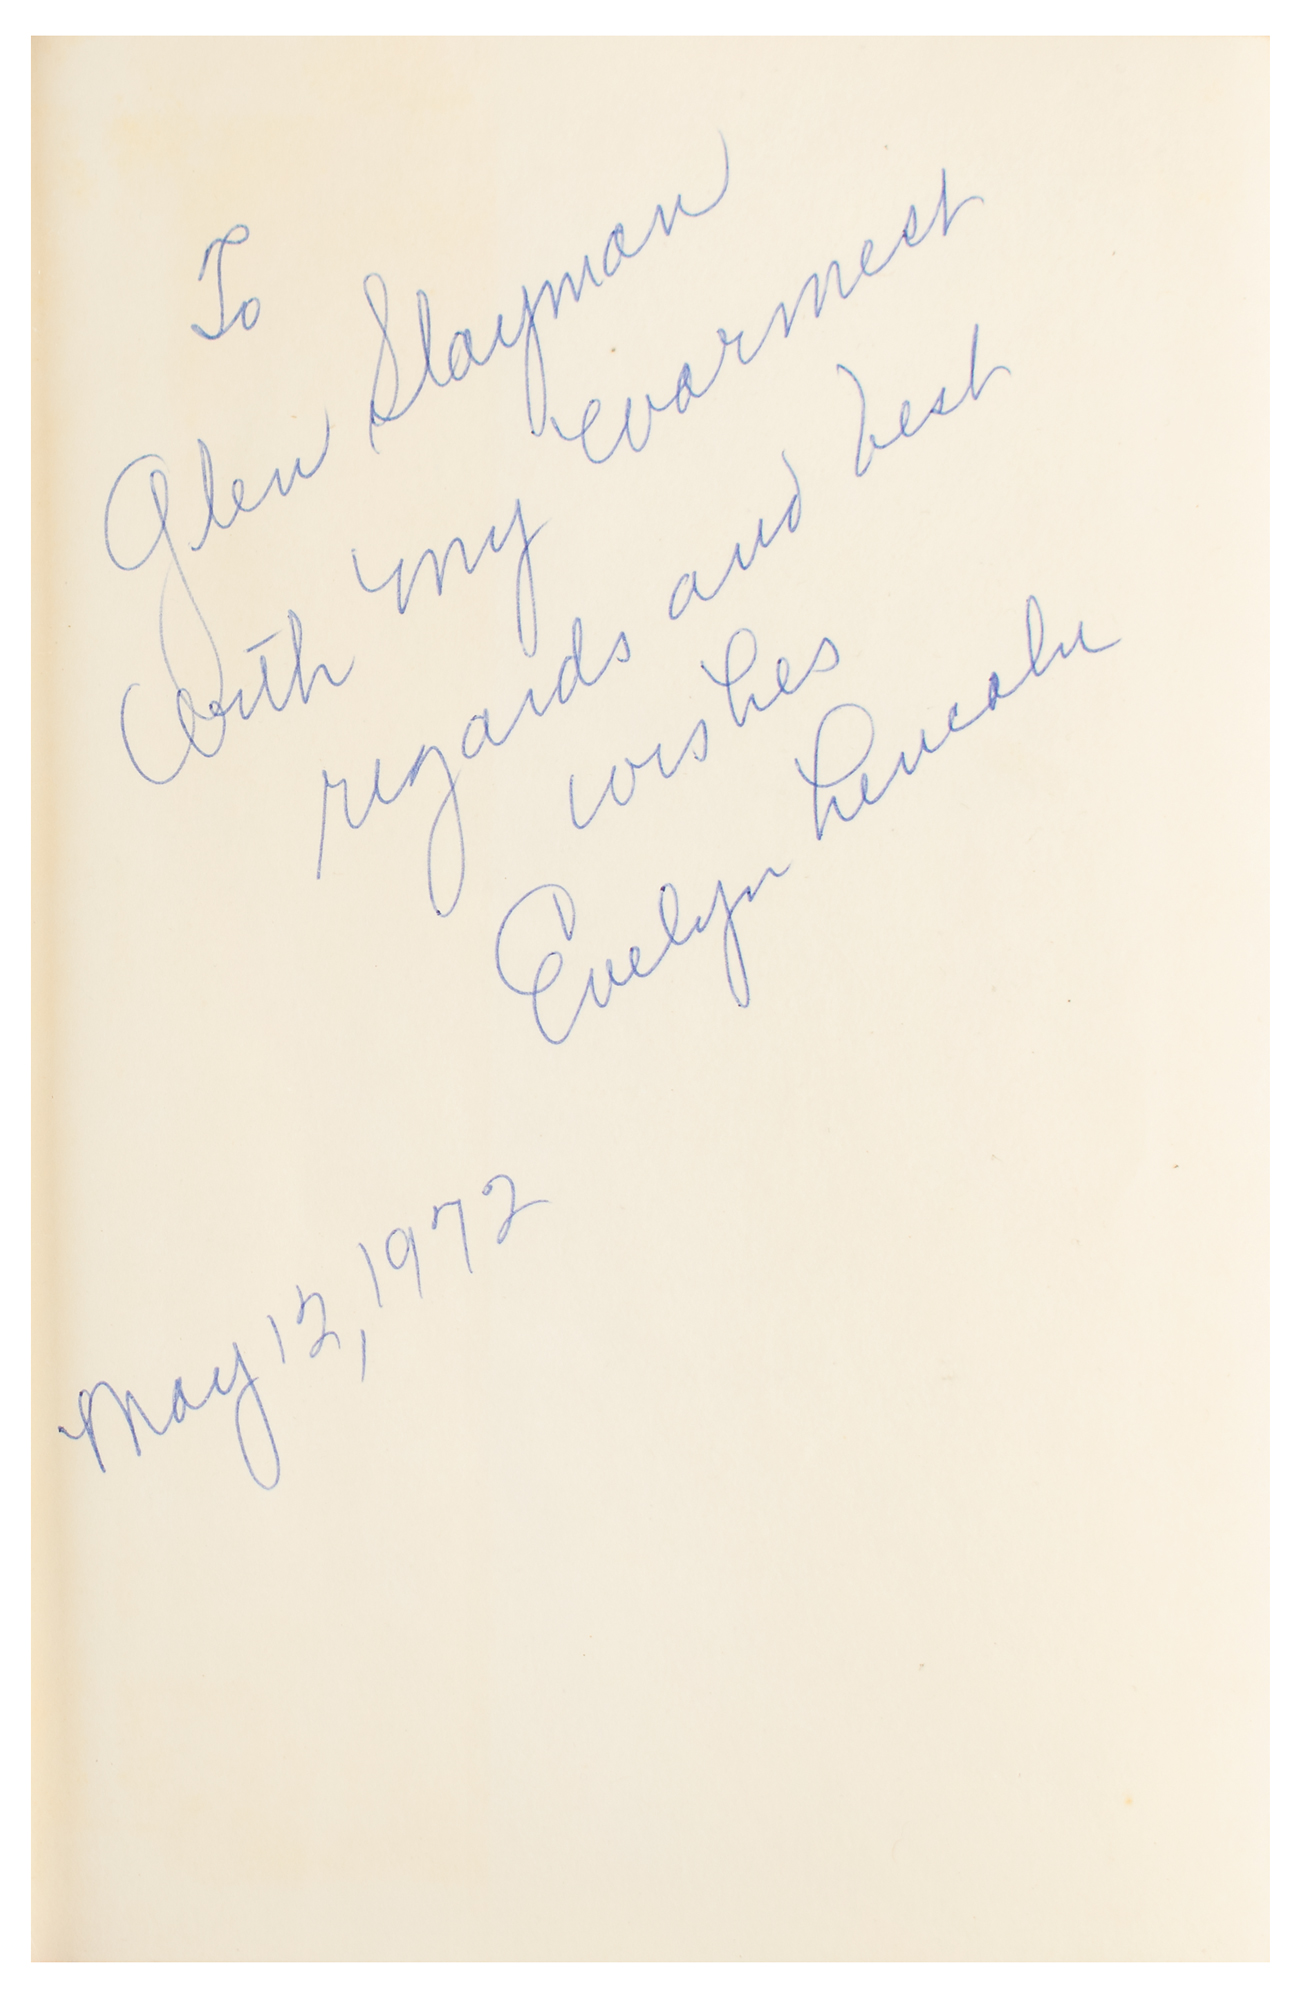 To
Glen Slayman
With my warmest
regards and best
wishes
Evelyn Lincoln
May 12, 1972